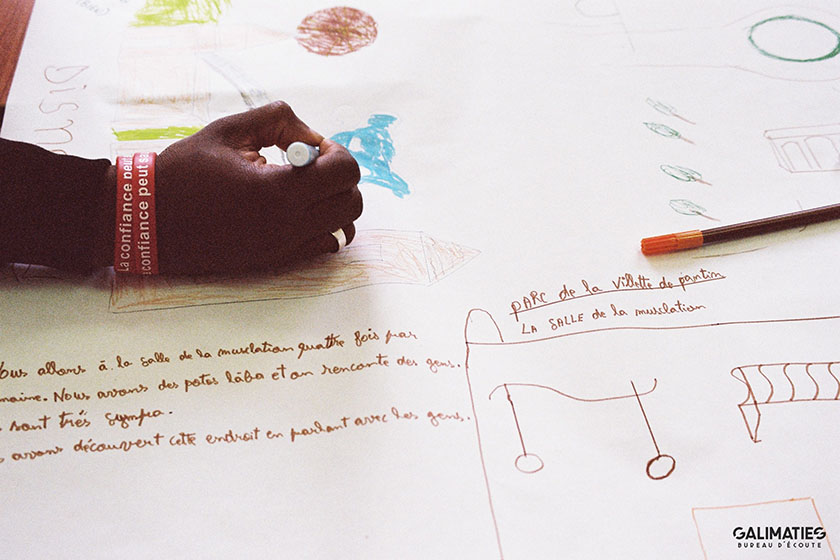 Disn
La confiance peut
confiance peut s
PARC de la Villette de pantin
LA SALLE de la musclation
Nous allons à la salle de la musclation quattre fois par
maine. Nous avons des potes laba et on rencante des gens.
s sont trés sympa.
s avons découvert cette endroit en parlant avec les gens.
GALIMATIES
BUREAU D'ÉCOUTE